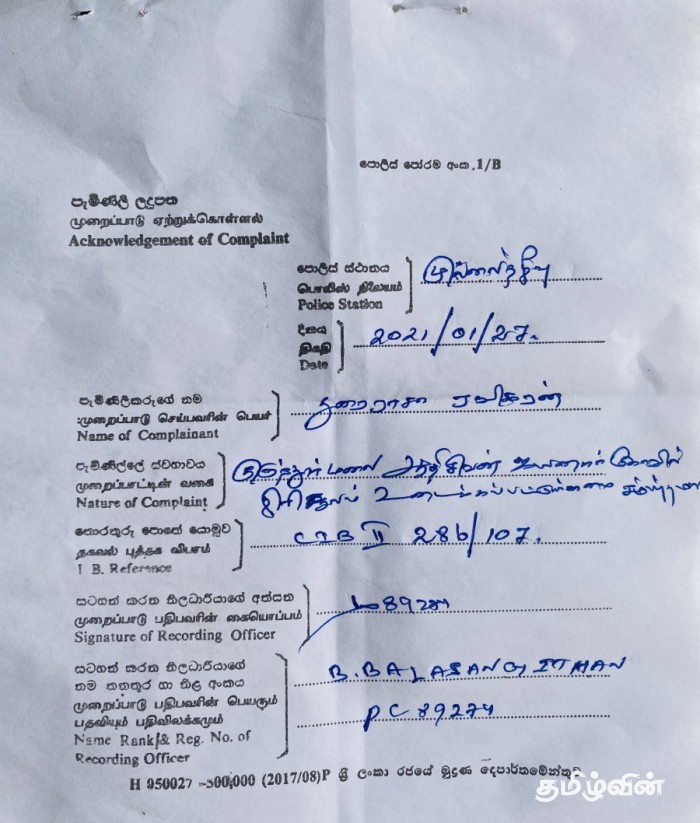 පොලිස් පෝරම අංක.1/B
පැමිණිලි ලදුපත
முறைப்பாடு ஏற்றுக்கொள்ளல்
Acknowledgement of Complaint
පොලිස් ස්ථානය
பொலிஸ் நிலையம்
Police Station
முல்லைத்தீவு
දිනය
திகதி
Date
2021/01/27.
පැමිණිලිකරුගේ නම
முறைப்பாடு செய்பவரின் பெயர்
Name of Complainant
துரைராசா ரவிகரன்
පැමිණිල්ලේ ස්වභාවය
முறைப்பாட்டின் வகை
Nature of Complaint
குருந்தூர் மலை ஆதிசிவன் ஐயனார் கோவில்
சூலம் உடைக்கப்பட்டுள்ளமை
තොරතුරු පොතේ යොමුව
தகவல் புத்தக விபரம்
I B. Reference
CIB II 286/107.
සටහන් කරන නිලධාරියාගේ අත්සන
முறைப்பாடு பதிபவரின் கையொப்பம்
Signature of Recording Officer
89274
සටහන් කරන නිලධාරියාගේ
නම තනතුර හා නිල අංකය
முறைப்பாடு பதிபவரின் பெயரும்
பதவியும் பதிவிலக்கமும்
Name Rank & Reg. No. of
Recording Officer
B.BALASANGITHAN
PC 89274
H 050027 -500,000 (2017/08)P ශ්‍රී ලංකා රජයේ මුද්‍රණ දෙපාර්තමේන්තුව
தமிழ்வின்